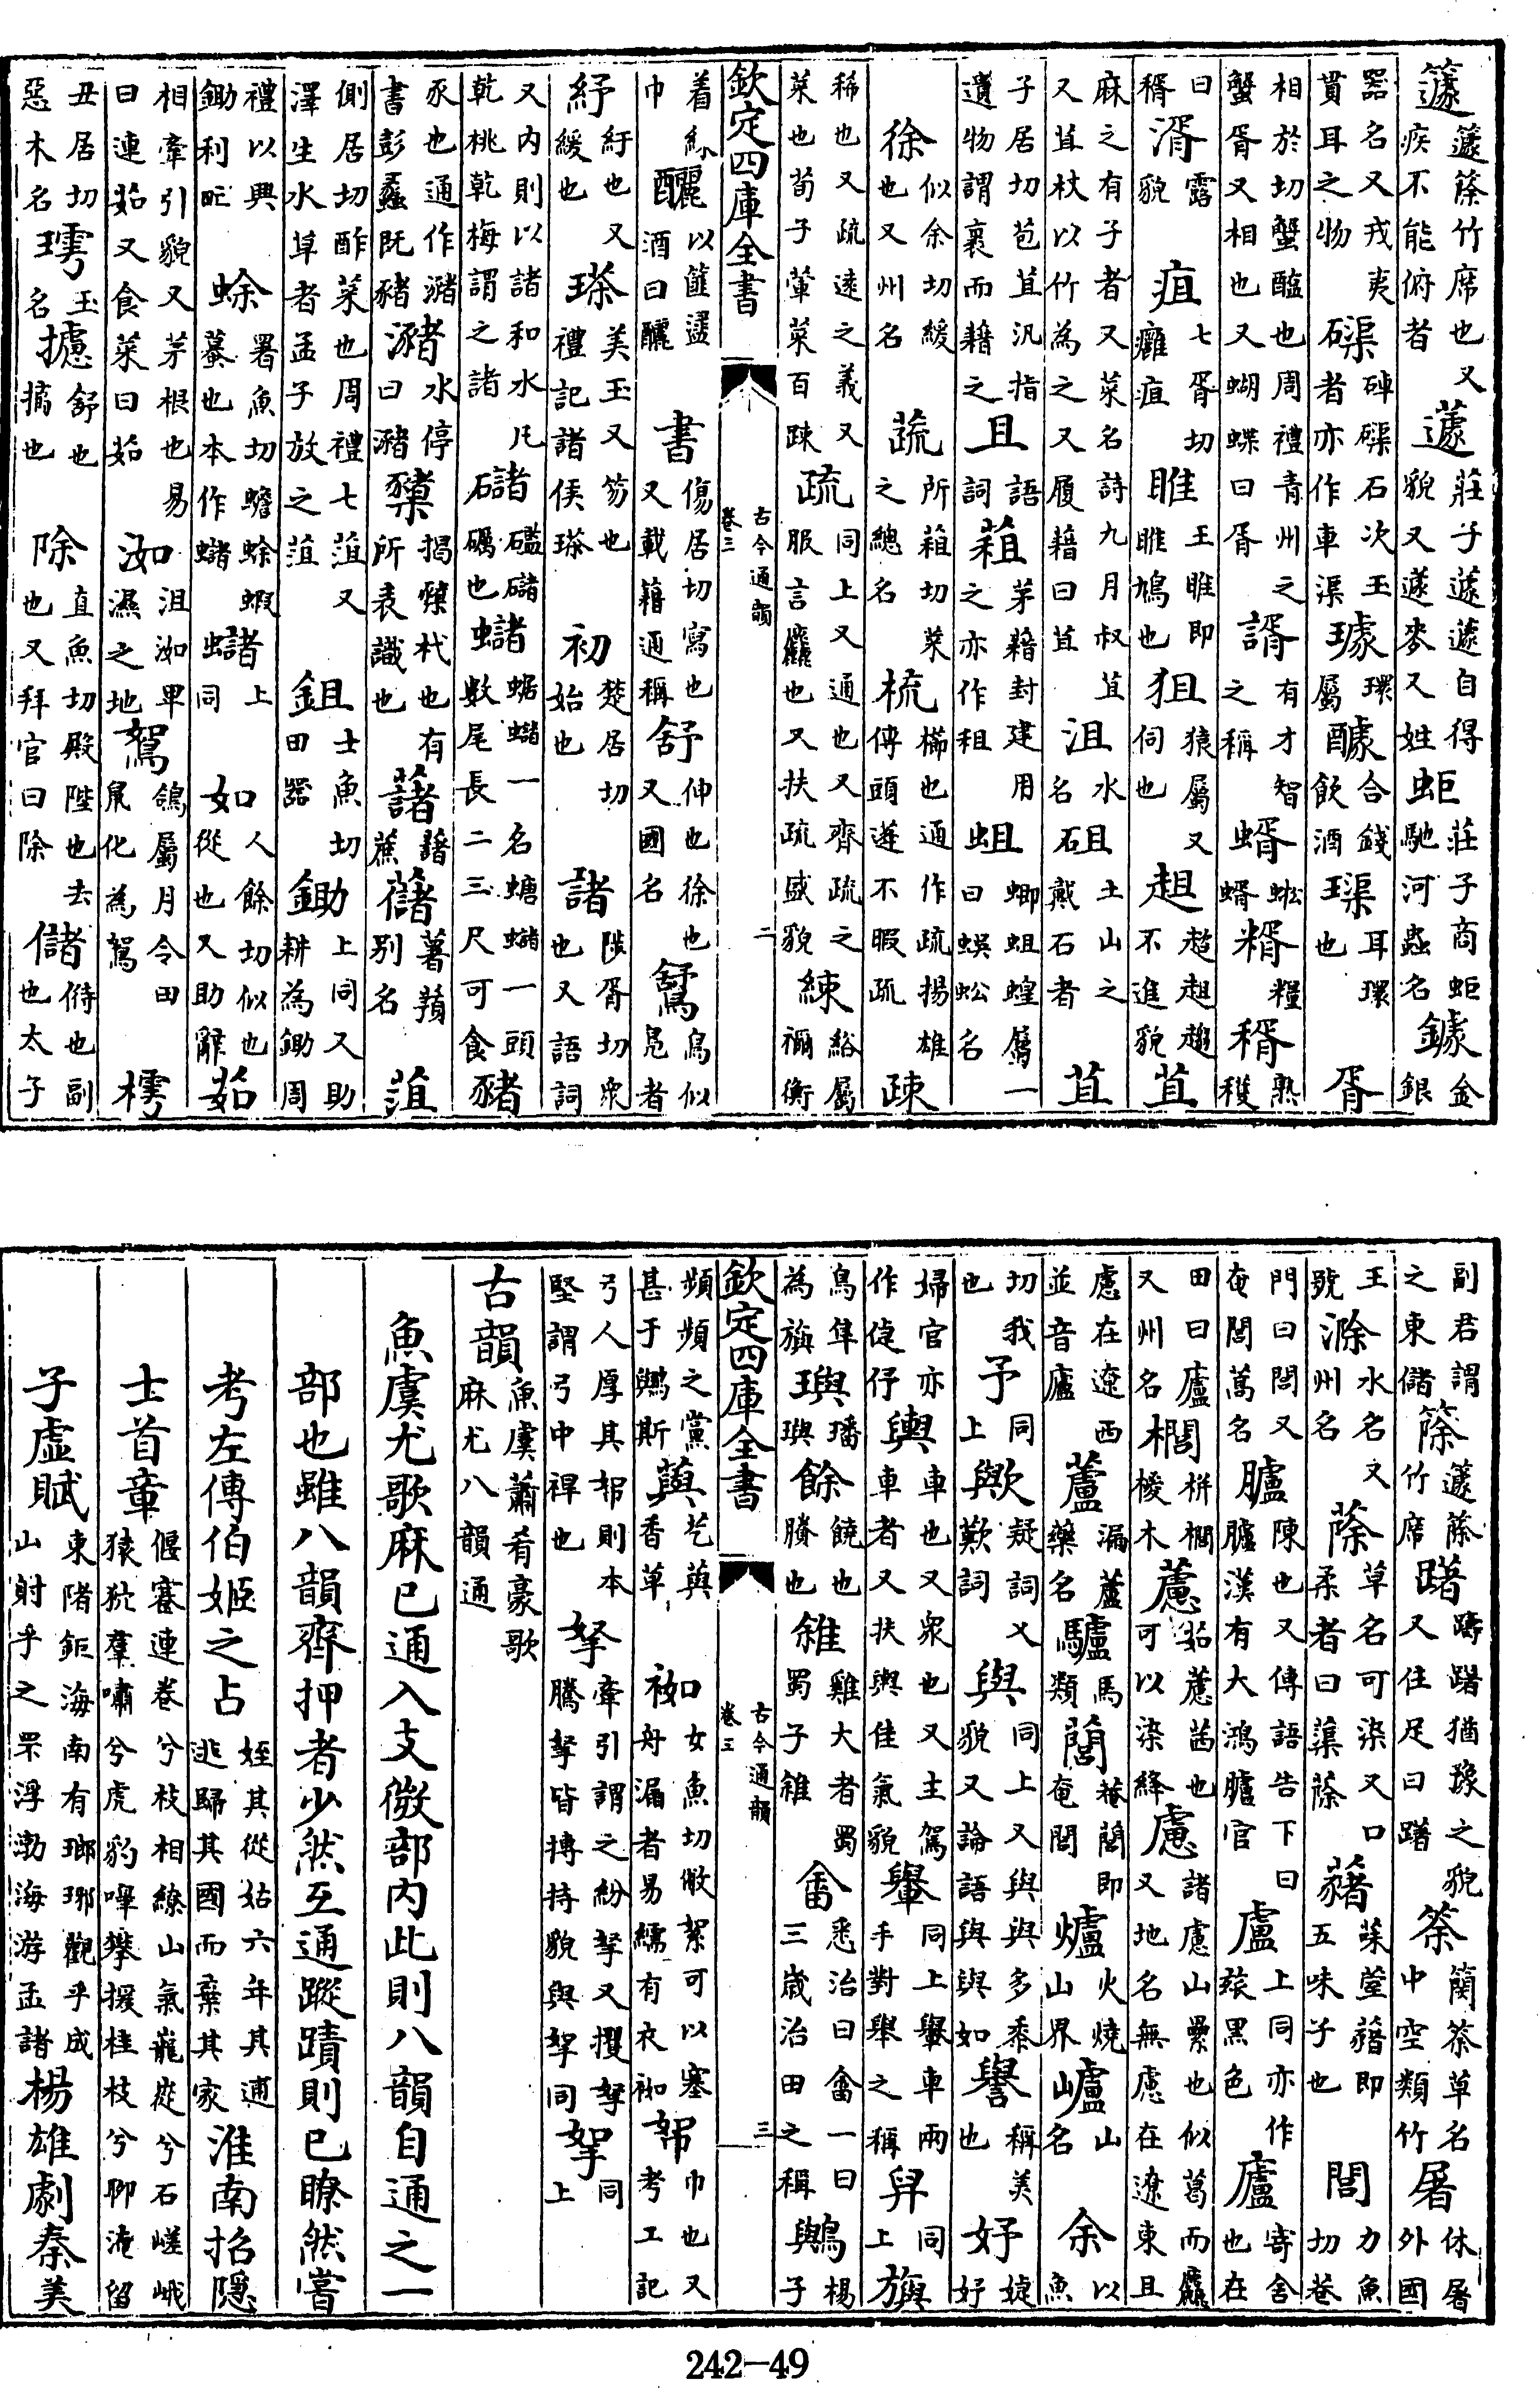 籧籧篨竹席也又疾不能俯者蘧莊子蘧蘧自得貌又蘧麥又姓蚷莊子商蚷馳河蟲名鐻金銀
器名又戎夷貫耳之物磲硨磲石次玉者亦作車渠璩環屬醵合錢飲酒璖耳環也胥
相於切蟹醢也周禮青州之蟹胥又相也又蝴蝶曰胥諝有才智之稱蝑蚣蝑糈糧稰熟穫
曰稰湑露貌疽七胥切癰疽睢王睢即睢鳩也狙猿屬又伺也趄趑趄趦不進貌苴
麻之有子者又菜名詩九月叔苴又苴杖以竹為之又履藉曰苴沮水名砠土山之戴石者苴
子居切苞苴汎指遺物謂裹而藉之且語詞蒩茅藉封建用之亦作租蛆蝍蛆蝗屬一曰蜈蚣名
徐似余切緩也又州名蔬所葅切菜之總名梳櫛也通作疏揚雄傳頭蓬不暇疏疎
稀也又疏遠之義又菜也荀子葷菜百疎疏同上又通也又齊疏之服言麤也又扶疏盛貌綀綌屬禰衡
欽定四庫全書 古今通韻 卷三 二
着綀巾釃以筐盪酒曰釃書傷居切寫也又載籍通稱舒伸也徐也又國名鵨鳥似鳧者
紓紆也又緩也瑹美玉又笏也禮記諸侯瑹初楚居切始也諸陟胥切衆也又語詞
又內則以諸和水凡乾桃乾梅謂之諸礛礛䃴礪也蠩蜛蠩一名蟕蠩一頭數尾長二三尺可食豬
豕也通作瀦書彭蠡旣豬瀦水停曰瀦櫫揭櫫杙也有所表識也藷藷蔗䕒薯蕷別名菹
側居切酢菜也周禮七菹又澤生水草者孟子放之菹鉏士魚切田器鋤上同又助耕為鋤周
禮以興鋤利甿蜍署魚切蟾蜍蝦蟇也本作蠩蠩上同如人餘切似也從也又助辭茹
相牽引貌又茅根也易曰連茹又食菜曰茹洳沮洳卑濕之地鴽鴿屬月令田鼠化為鴽樗
丑居切惡木名㻬玉名攄舒也摛也除直魚切殿陛也去也又拜官曰除儲偫也副也太子
副君謂之東儲篨籧篨竹席躇躊躇猶豫之貌又住足曰躇筡簢筡草名中空類竹屠休屠外國
王號滁水名又州名蒢草名可染又口柔者曰蕖蒢藸荎藸即五味子也閭力魚切巷
門曰閭又奄閭蒿名臚陳也又傳語告下曰臚漢有大鴻臚官盧上同亦作玈黑色廬寄舍也在
田曰廬又州名櫚栟櫚椶木藘茹藘茜也可以染絳慮諸慮山櫐也似葛而麤又地名無慮在遼東且
慮在遼西並音廬蘆漏蘆藥名驢馬類䕡菴䕡即奄閭爐火燒山界嶇山名余以魚
切我也予同上歟疑詞又歎詞與同上又與與多黍貌又論語與與如譽稱美也妤婕妤
婦官亦作倢伃輿車也又衆也又主駕車者又扶輿佳氣貌轝同上轝車兩手對舉之稱舁同上旟
鳥隼為旟璵璠璵餘饒也賸也雓雞大者蜀蜀子雓畬悉治曰畬一曰三歲治田之稱鸒楊子
欽定四庫全書 古今通韻 卷三 三
頻頻之黨甚于鸒斯藇艺藇香草袽女魚切敝絮可以塞舟漏者易繻有衣袽帤巾也又考工記
弓人厚其帤則木堅謂弓中裨也挐牽引謂之紛挐又攫挐騰挐皆摶持貌與拏同拏同上
古韻魚虞蕭肴豪歌麻尤八韻通
魚虞尤歌麻已通入支微部內此則八韻自通之一
部也雖八韻齊押者少然互通蹤蹟則已瞭然嘗
考左傳伯姬之占姪其從姑六年其逋逃歸其國而棄其家淮南招隱
士首章偃蹇連卷兮枝相繚山氣巃嵸兮石嵯峨猿狖羣嘯兮虎豹嗥攀援桂枝兮聊淹留
子虛賦東陼鉅海南有瑯琊觀乎成山射乎之罘浮渤海游孟諸楊雄劇秦美
242—49